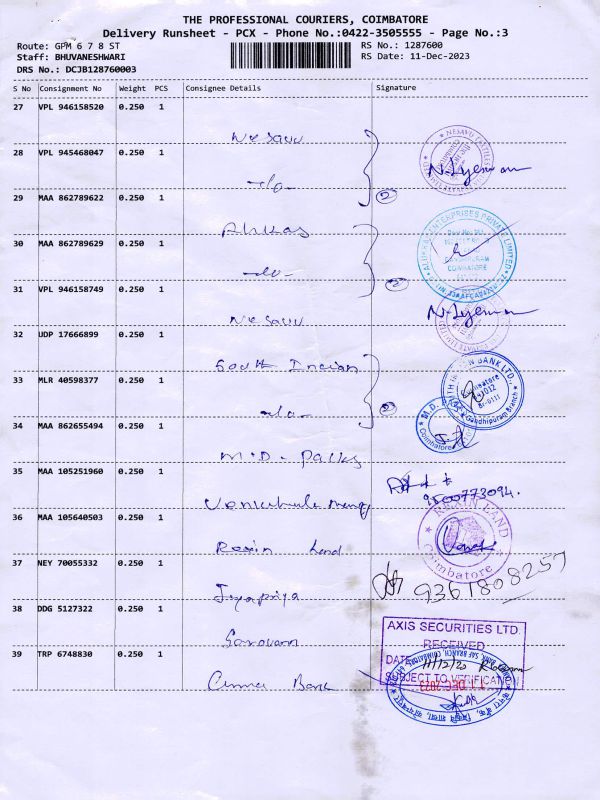 THE PROFESSIONAL COURIERS, COIMBATORE
Delivery Runsheet - PCX - Phone No.:0422-3505555 - Page No.:3
Route: GPM 6 7 8 ST
RS No.: 1287600
Staff: BHUVANESHWARI
RS Date: 11-Dec-2023
DRS No.: DCJB128760003
S No Consignment No Weight PCS Consignee Details Signature
27 VPL 946158520 0.250 1
Nesavu
28 VPL 945468047 0.250 1
-do-
N. Iyeman
29 MAA 862789622 0.250 1
2
30 MAA 862789629 0.250 1
-do-
ENTERPRISES PRIVATE LIMITED
COIMBATORE
31 VPL 946158749 0.250 1
2
Nesavu
N. Iyeman
32 UDP 17666899 0.250 1
South Indian
33 MLR 40598377 0.250 1
-do-
2
Gandhipuram Branch
34 MAA 862655494 0.250 1
M.D. Packs
Coimbatore
35 MAA 105251960 0.250 1
9500773094.
36 MAA 105640503 0.250 1
Rexin Land
REXIN LAND
Coimbatore
37 NEY 70055332 0.250 1
Jyapriya
9361808257
38 DDG 5127322 0.250 1
Saravann
AXIS SECURITIES LTD.
RECEIVED
39 TRP 6748830 0.250 1
DATE 11/12/23
SUBJECT TO VERIFICATION
Bank
11 DEC 2023